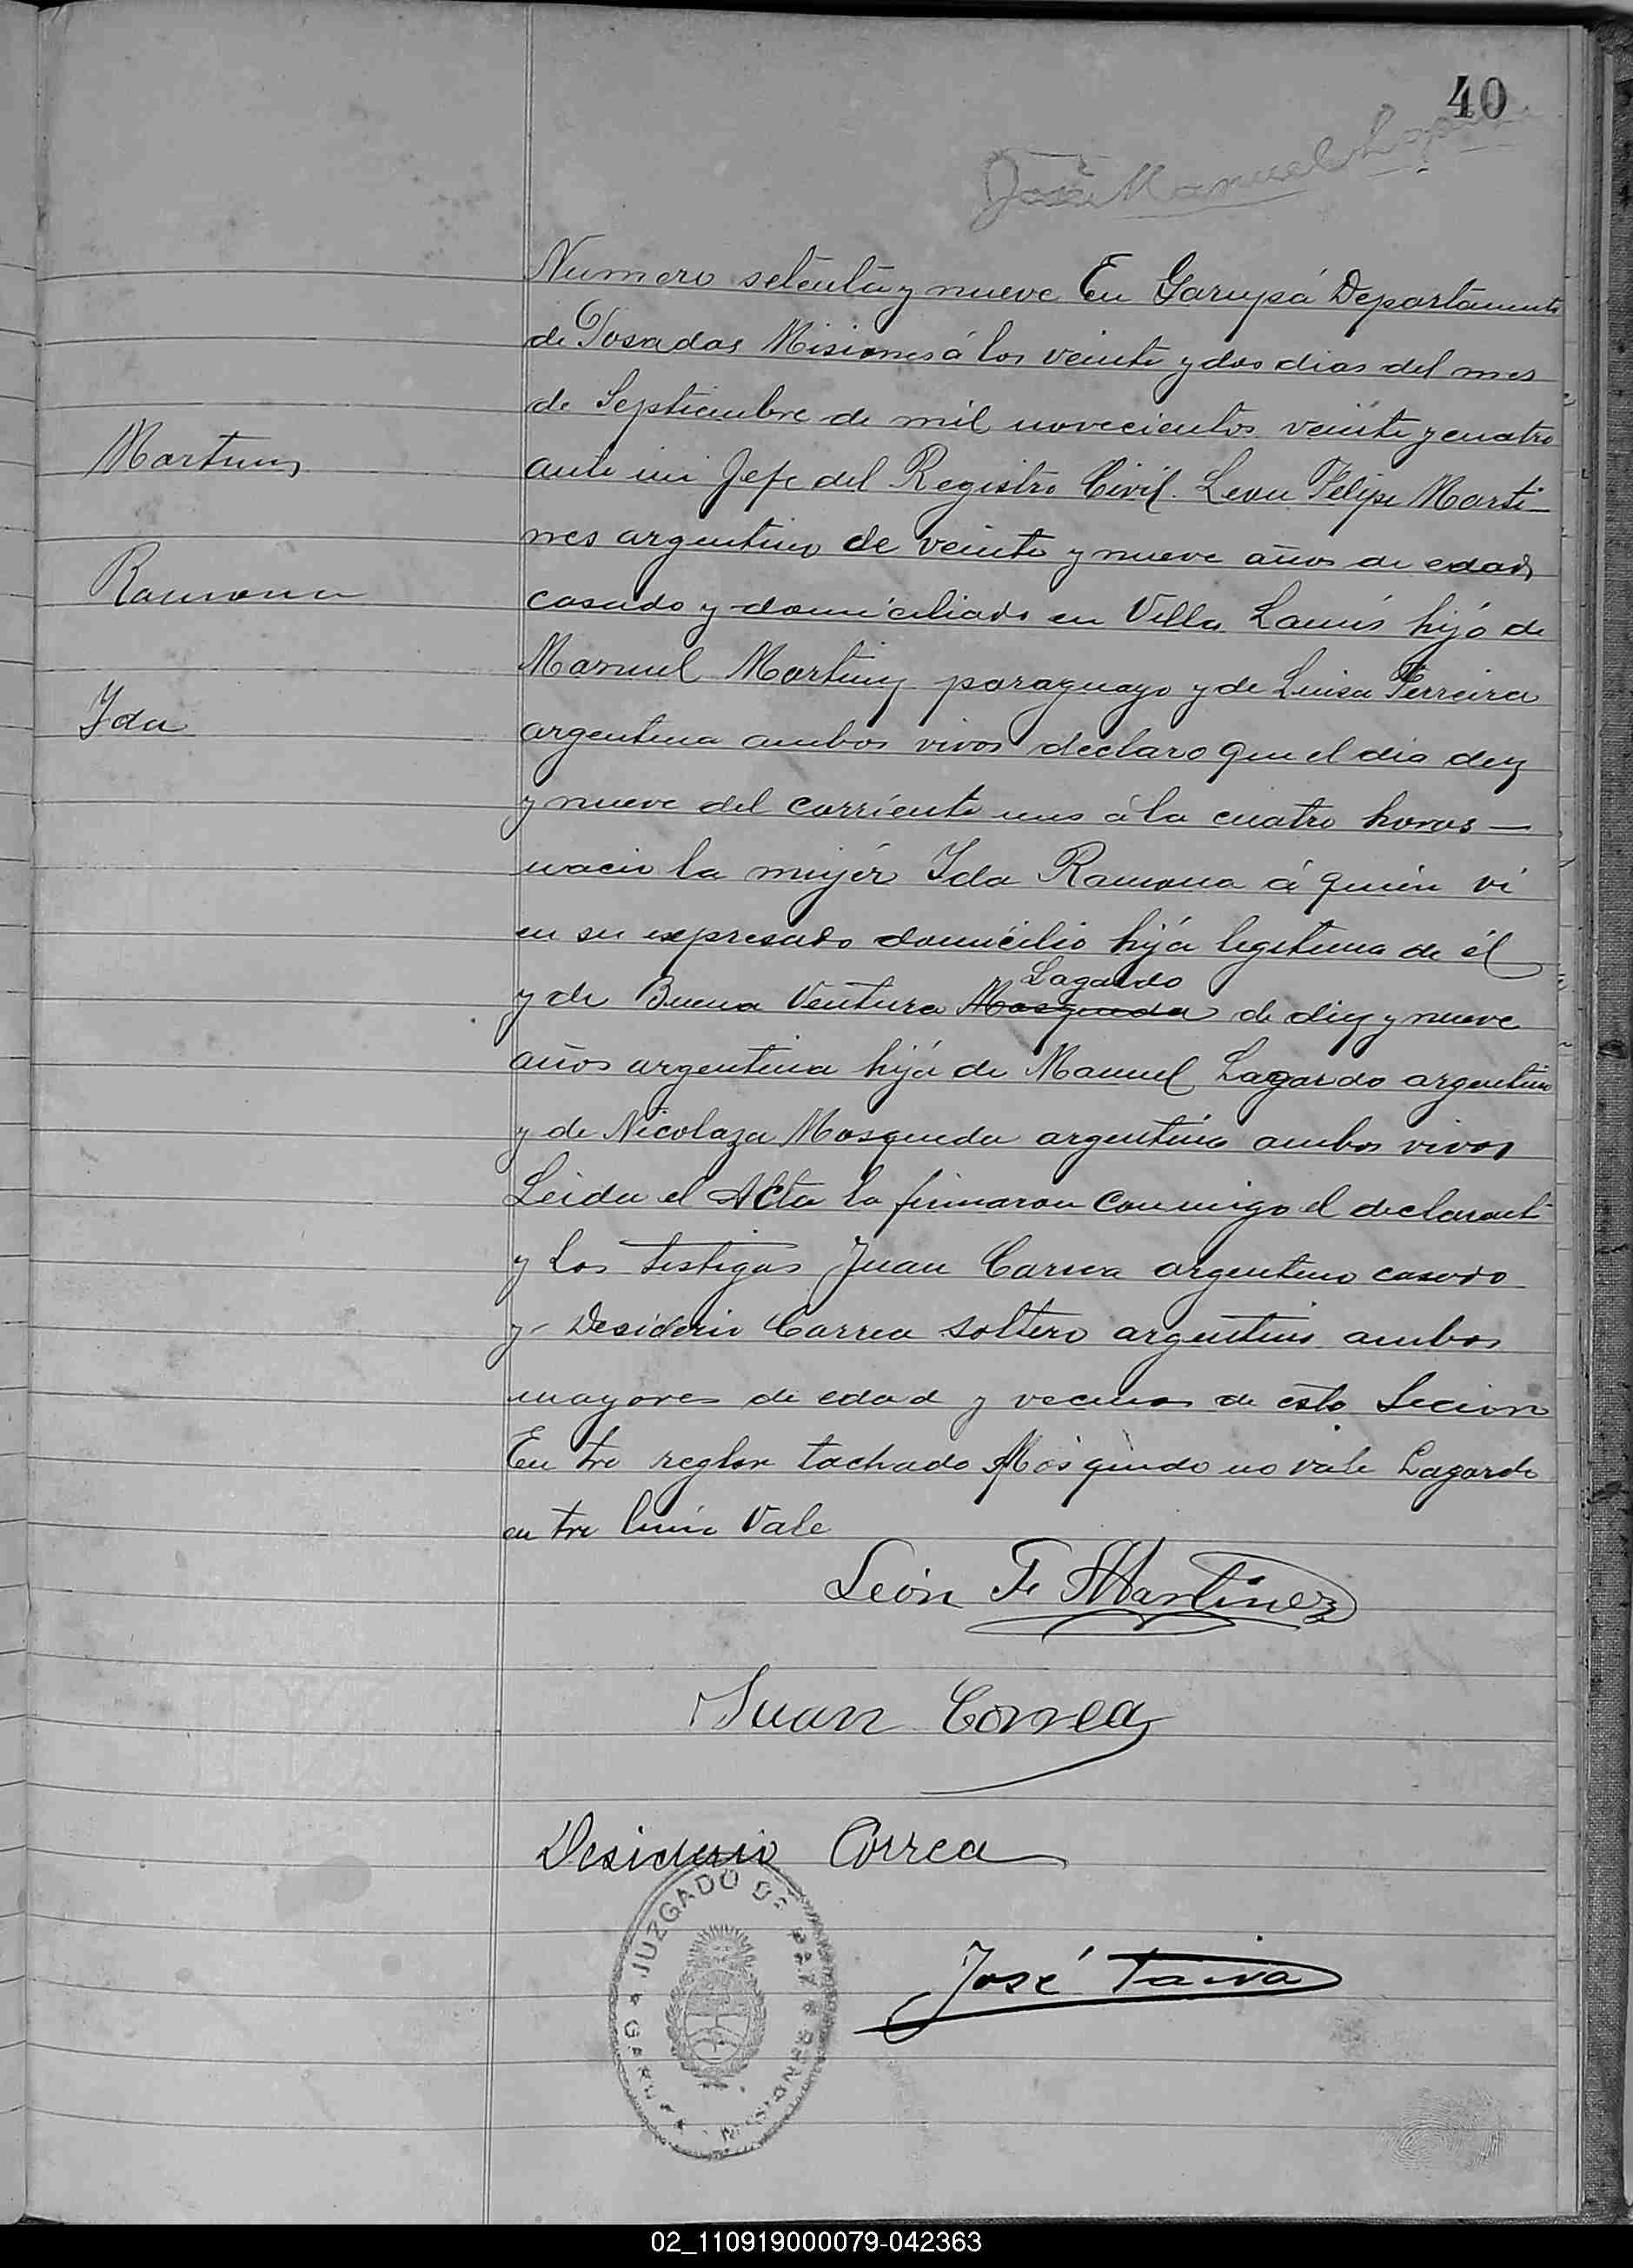 40
José Manuel
Numero setenta y nueve En Garupá Departamento
de Posadas Misiones á los veinte y dos dias del mes
de Septiembre de mil novecientos veinte y cuatro
Martines
ante mi Jefe del Registro Civil. Leon Felipe Marti-
nes argentino de veinte y nueve años de edad
Ramona
casado y domiciliado en Villa Lanús hijó de
Manuel Martinez paraguayo y de Luisa Ferreira
Ida
argentina ambos vivos declaro que el dia diez
y nueve del corriente mes á la cuatro horas —
nacio la mujér Ida Ramona á quien vi
en su expresado domicilio hijá legitima de él
Lagardo
y de Buena Ventura Mosqueda de diez y nueve
años argentina hijá de Manuel Lagardo argentino
y de Nicolaza Mosqueda argentina ambos vivos
Leida el Acta la firmaron conmigo el declarante
y Los testigos Juan Correa argentino casado
y Desiderio Correa soltero argentino ambos
mayores de edad y vecinos de esta Secion
En tre reglon tachado Mosquedo no vale Lagardo
en tre linia Vale
León F Martinez
Juan Correa
Desiderio Correa
JUZGADO DE PAZ
GARUPA
José Paiva
02_110919000079-042363